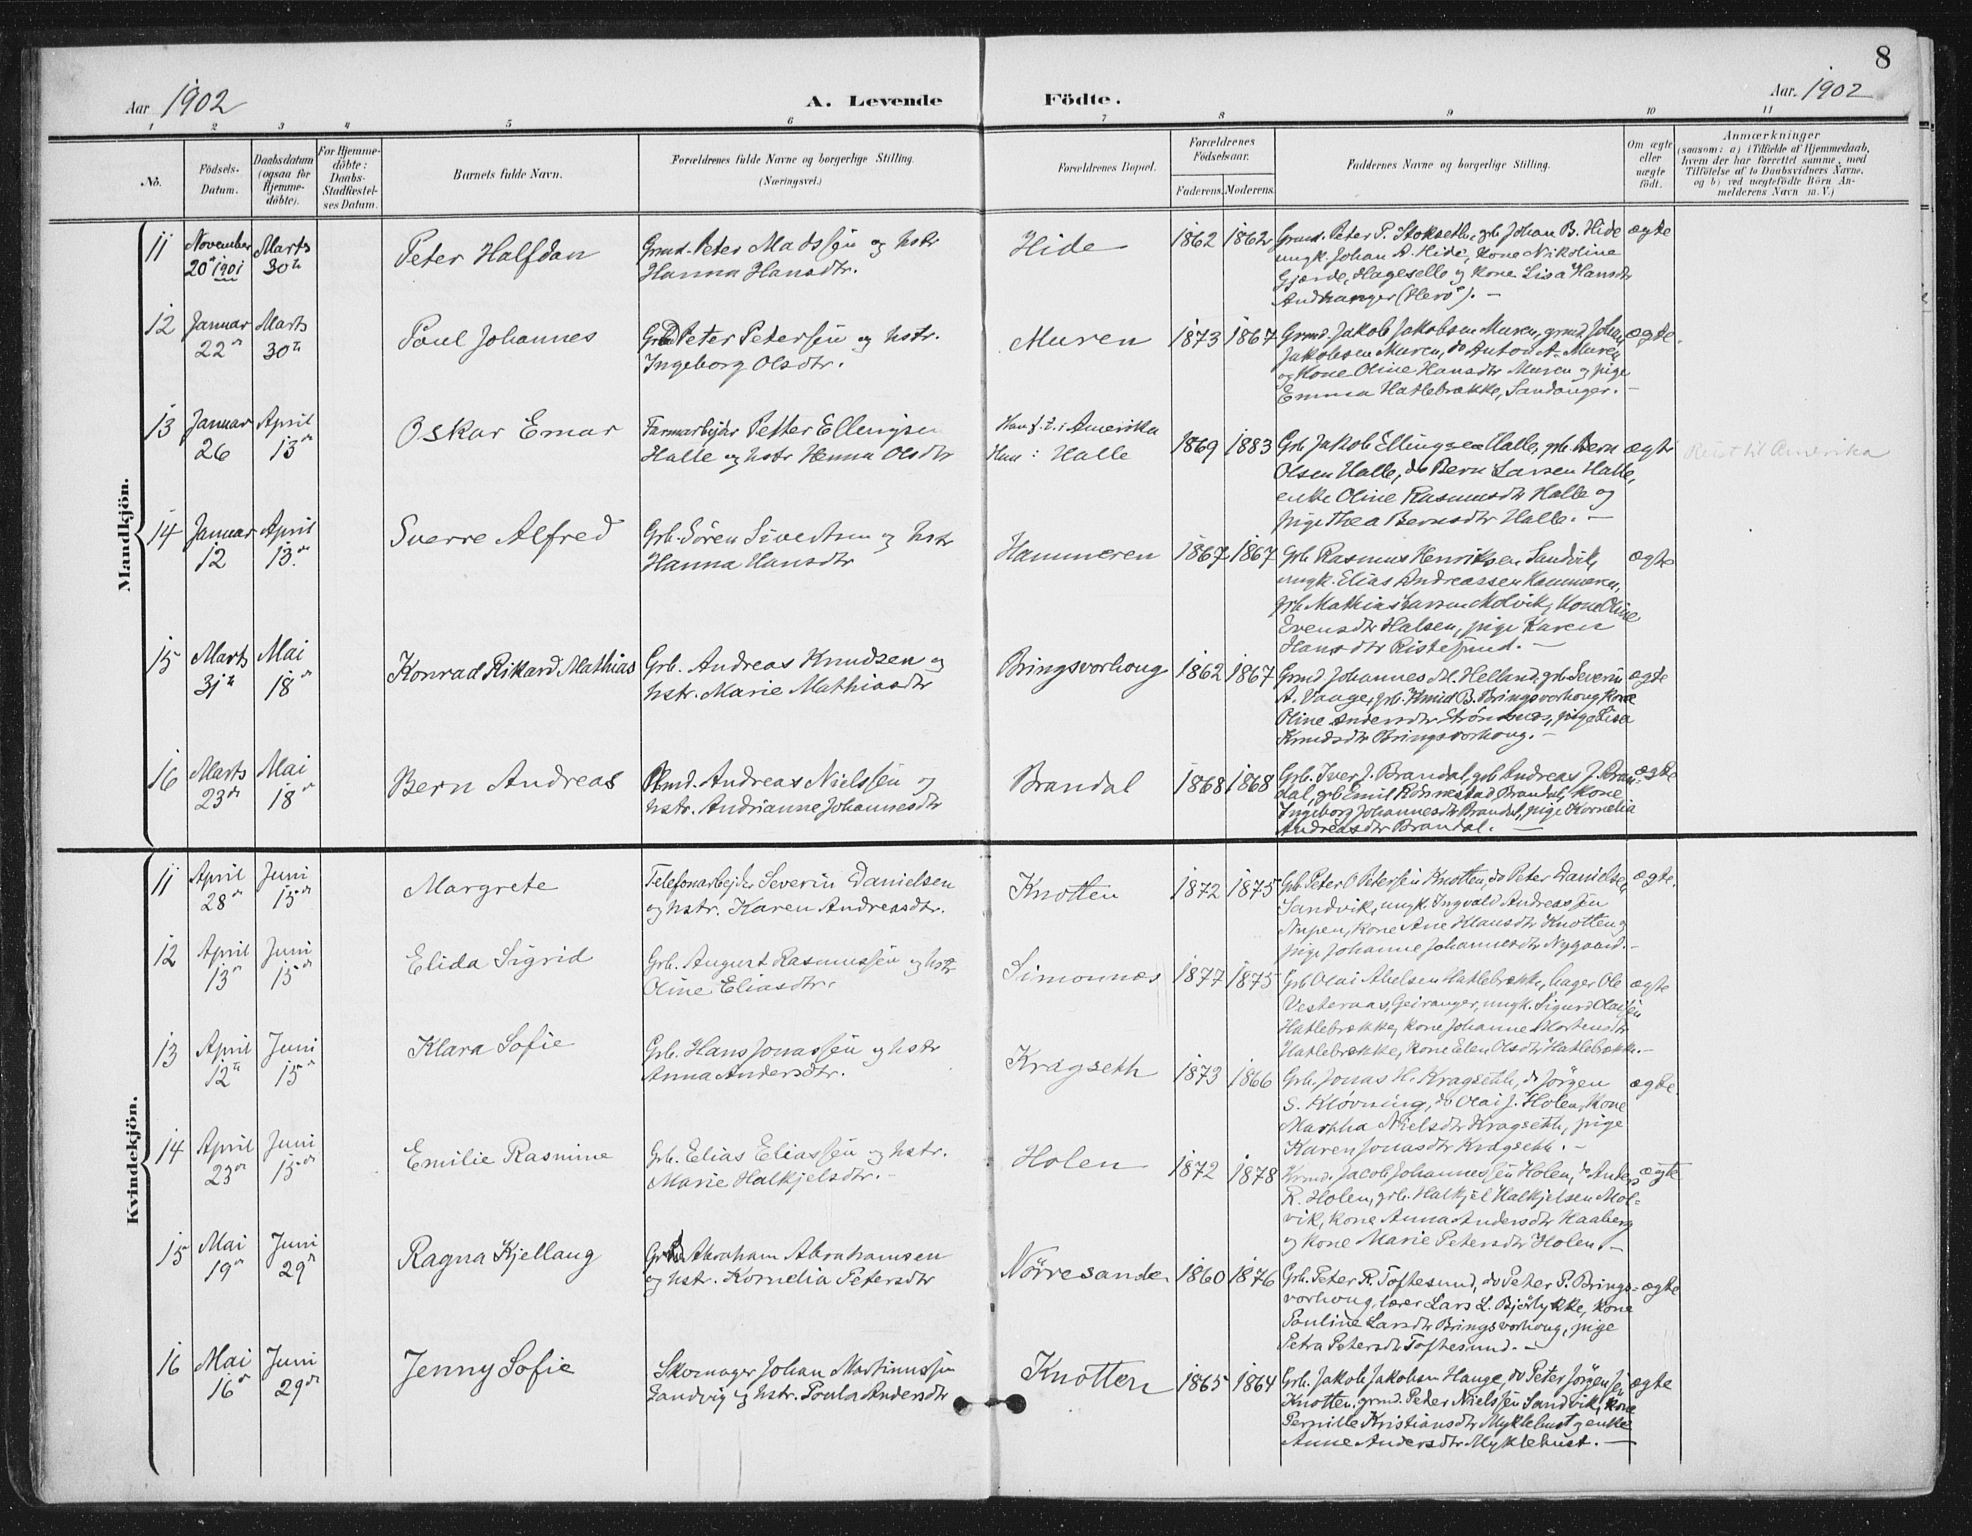 8
Aar 1902
A. Levende
Födte.
Aar. 1902
1 2 3 4 5 6 7 8 9 10 11
No.
Födsels-
Datum.
Daabsdatum
(ogsaa for
Hjemme-
döbte).
For Hjemme-
döbte:
Daabs-
Stadfæstel-
ses Datum.
Barnets fulde Navn.
Forældrenes fulde Navne og borgerlige Stilling.
(Næringsvei.)
Forældrenes Bopæl.
Forældrenes
Födselsaar.
Faderens. Moderens.
Faddernes Navne og borgerlige Stilling.
Om ægte
eller
uægte
födt.
Anmærkninger
(saasom: a) i Tilfælde af Hjemmedaab,
hvem der har forrettet samme, med
Tilföielse af to Daabsvidners Navne,
og b) ved uægtefödte Börn An-
melderens Navn m. V.)
Mandkjön.
11
November
20de 1901
Marts
30te
Peter Halfdan
Grmd. Peter Madssen og hstr
Hanna Hansdtr.
Hide
1862 1862
Grmd. Peter P. Stokseth, grb Johan B. Hide
ungk. Johan A. Hide, Kone Nikoline
Gjerde, Hageselle og Kone Lisa Hansdtr
Andhanger (Herö). —
ægte
12
Januar
22de
Marts
30te
Poul Johannes
Peter Petersen og hstr.
Ingeborg Olsdtr.
Muren
1873 1867
Grmd. Jakob Jakobsen Muren, grmd. Johan
Jakobsen Muren, do Anton A. Muren
og Kone Oline Hansdtr Muren og pige
Emma Hatlebrække, Sandanger. —
ægte.
13
Januar
26
April
13de
Oskar Emar
Farmarbejdr Petter Ellingsen
Halle og hstr Hanna Olsdtr
Han f. t. i Amerika
Hun : Halle
1869 1883
Grb. Jakob Ellingsen Halle, grb. Bern
Olsen Halle, do Bern Larsen Halle,
enke Oline Rasmusdtr Halle og
pige Thea Bernsdtr Halle. —
ægte
Reist til Amerika
14
Januar
12
April
13de
Sverre Alfred
Grb. Sören Sivertsen og hstr
Hanna Hansdtr
Hammeren
1867 1867
Grb. Rasmus Henriksen Sandvik,
ungk. Elias Andreassen Hammeren,
grb. Mathias Larsen Molvik, Kone Oline
Evensdtr Halsen, pige Karen
Hansdtr Ristesund. —
ægte
15
Marts
31te
Mai
18de
Konrad Rikard Mathias
Grb. Andreas Knudsen og
hstr. Marie Mathiasdtr
Bringsvorhoug
1862 1867
Grmd Johannes M. Helland, grb. Severin
A. Vaage, grb. Knud B. Bringsvorhoug, Kone
Oline Andersdtr Strömnes, pige Lisa
Knudsdtr Bringsvorhoug. —
ægte
16
Marts
23de
Mai
18de
Bern Andreas
Andreas Nielssen og
hstr. Andrianne Johannesdtr
Brandal
1868 1868
Grb. Iver J. Brandal, grb Andreas J. Bran-
dal, grb Emil Rönnestad Brandal, Kone
Ingeborg Johannesdtr Brandal, pige Kornelia
Andreasdtr Brandal. —
ægte
Kvindekjön.
11
April
28de
Juni
15de
Margrete
Telefonarbejder Severin Danielsen
og hstr. Karen Andreasdtr.
Knotten
1872 1875
Grb Peter O Petersen Knotten, do Peter Danielsen
Sandvik, ungk. Ingvald Andreassen
Nupen, Kone Ane Klausdtr Knotten og
pige Johanne Johannesdtr Nygaard. —
ægte.
12
April
13de
Juni
15de
Elida Sigrid
Grb. August Rasmussen og hstr
Oline Eliasdtr.
Simonnæs
1877 1875
Grb Olai Abelsen Hatlebrække, bager Ole
Vesteraas, Geiranger, ungk. Sigurd Olaisen
Hatlebrække, kone Johanne Mortensdtr
Hatlebrække, kone Elen Olsdtr Hatlebrække. —
ægte
13
April
12te
Juni
15de
Klara Sofie
Grb. Hans Jonassen og hstr
Anna Andersdtr.
Kragseth
1873 1866
Grb. Jonas H. Kragseth, do Jörgen
S. Klövning, do Olai J. Holen, Kone
Martha Nielsdtr Kragseth, pige
Karen Jonasdtr Kragseth. —
ægte
14
April
23de
Juni
15de
Emilie Rasmine
Grb. Elias Eliassen og hstr.
Marie Halkjelsdtr. -
Holen
1872 1878
Grmd. Jacob Johannessen Holen, do Anders
R. Holen, grb. Halkjel Halkjelsen Mol-
vik, Kone Anna Andersdtr Haaberg
og Kone Marie Petersdtr Holen. —
ægte
15
Mai
19de
Juni
29de
Ragna Kjellaug
Abraham Abrahamsen
og hstr. Kornelia Petersdtr
Nörresande
1860 1876
Grb. Peter R. Toftesund, do Peter P. Brings-
vorhoug, lærer Lars L. Bjørlykke, Kone
Pauline Larsdtr Bringsvorhoug, pige
Petra Petersdtr Toftesund. —
ægte
16
Mai
16de
Juni
29de
Jenny Sofie
Skomager Johan Martinussen
Sandvig og hstr. Paula Andersdtr
Knotten
1865 1864
Grb. Jakob Jakobsen Hauge, do Peter Jörgensen
Knotten, grmd. Peder Nielssen Sandvik, kone
Pernille Kristiansdtr Myklebust og enke
Anne Andersdtr Myklebust. —
ægte